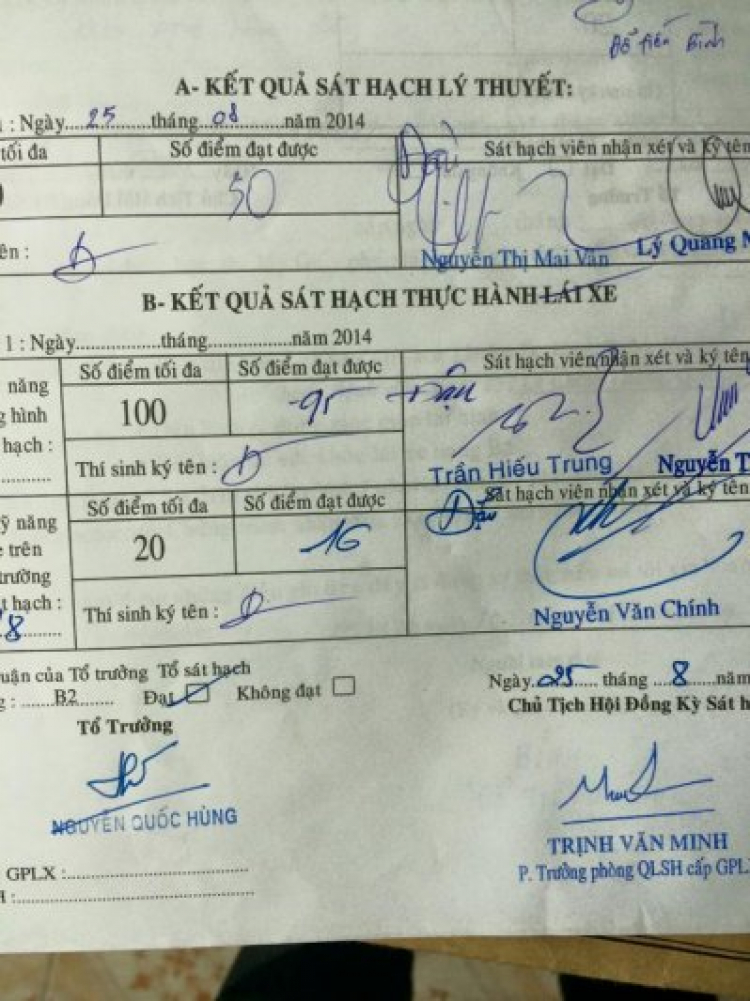 Đỗ Tiến Bình
A- KẾT QUẢ SÁT HẠCH LÝ THUYẾT:
: Ngày....25....tháng...08....năm 2014
tối đa Số điểm đạt được Sát hạch viên nhận xét và ký tên
30 Đậu
ên :
Nguyễn Thị Mai Vân Lý Quang
B- KẾT QUẢ SÁT HẠCH THỰC HÀNH LÁI XE
1 : Ngày..................tháng..................năm 2014
năng Số điểm tối đa Số điểm đạt được Sát hạch viên nhận xét và ký tên
g hình 100 95 Đậu
hạch :
Thí sinh ký tên : Trần Hiếu Trung Nguyễn T
ỹ năng Số điểm tối đa Số điểm đạt được Sát hạch viên nhận xét và ký tên
trên 20 16 Đậu
trường
t hạch : Thí sinh ký tên : Nguyễn Văn Chính
8
uận của Tổ trưởng Tổ sát hạch
g : ......B2....... Đạt Không đạt
Ngày..25.... tháng ....8.....năm
Tổ Trưởng Chủ Tịch Hội Đồng Kỳ Sát h
NGUYỄN QUỐC HÙNG
TRỊNH VĂN MINH
P. Trưởng phòng QLSH cấp GPLX
GPLX :